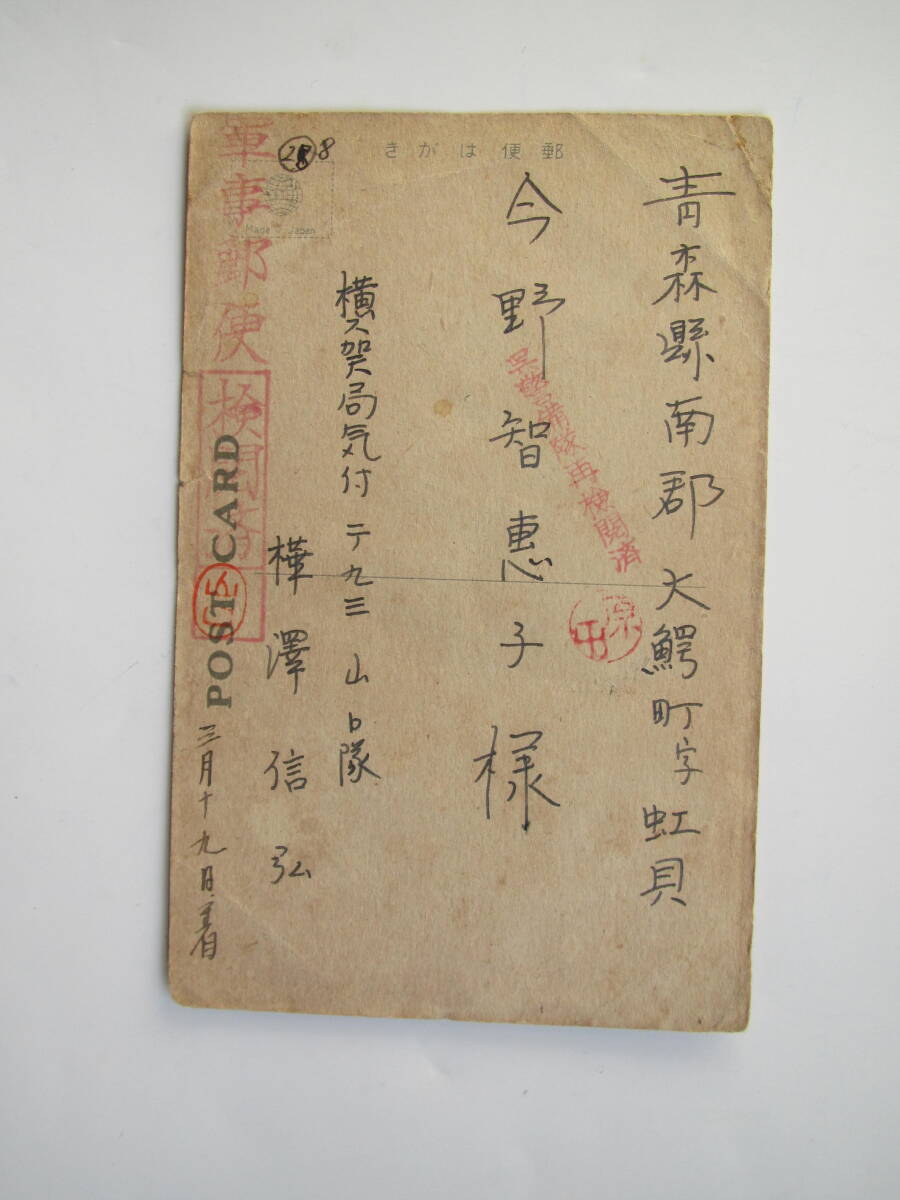 青森縣南郡大鰐町字虹貝
郵便はがき
今野智恵子様
呉警備隊再検閲済
横ス賀局気付 テ九三 山口隊
樺澤信弘
288
Made in Japan
軍事郵便
検閲済
POST CARD
三月十九日着